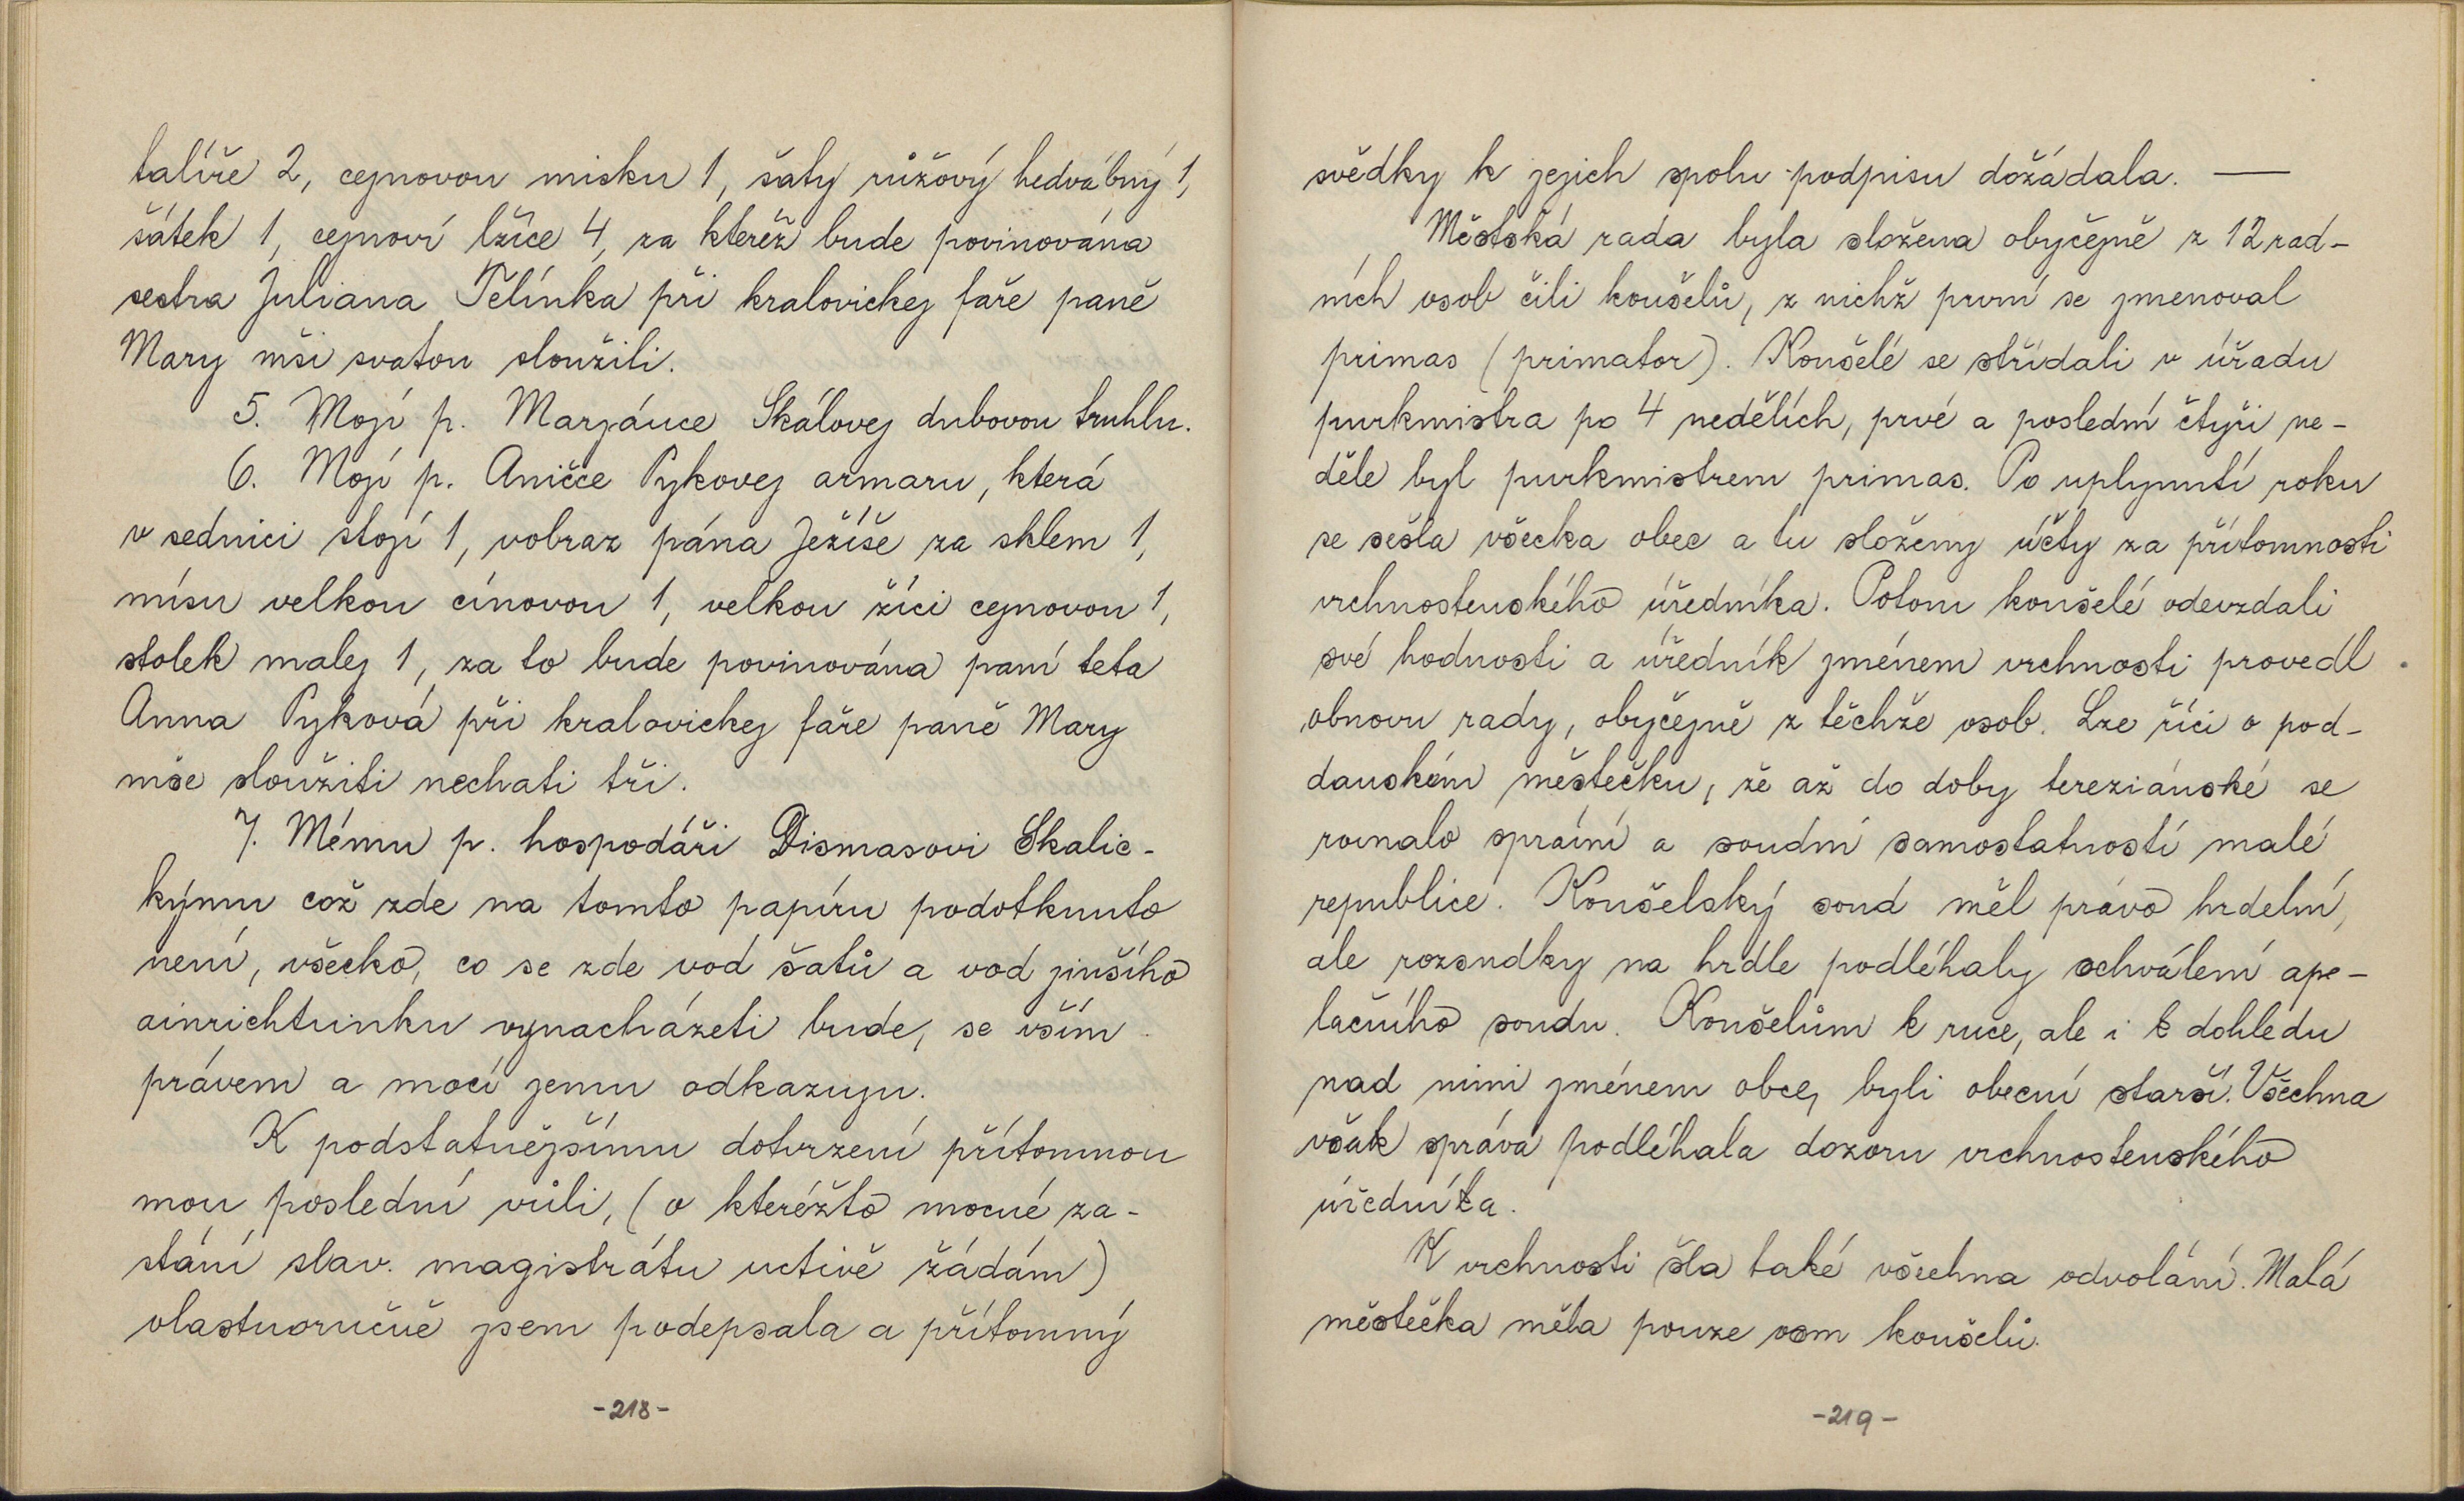 talíře 2, cejnovou misku 1, šaty růžový hedvábný 1,
šátek 1, cejnoví lžíce 4, za kterěž bude povinována
sestra Juliana Tělínka při kralovickej faře paně
Mary mši svatou sloužili.
5. Mojí p. Marjánce Skálovej dubovou truhlu.
6. Mojí p. Aničce Pykovej armaru, která
v sednici stojí 1, vobraz pána Ježíše za sklem 1,
mísu velkou cínovou 1, velkou žíci cejnovou 1,
stolek malej 1, za to bude povinována paní teta
Anna Pyková při kralovickej faře paně Mary
mše sloužiti nechati tři.
7. Mému p. hospodáři Dismasovi Skalic-
kýmu což zde na tomto papíru podotknuto
není, všecko, co se zde vod šatů a vod jinšího
ainrichtuinku vynacházeti bude, se vším
právem a mocí jemu odkazuju.
K podstatnějšímu dotvrzení přítomnou
mou poslední vůli, (o kteréžto mocné za-
stání slav. magistrátu uctivě žádám)
vlastnoručně jsem podepsala a přítomný
-218-
svědky k jejich spolu-podpisu dožádala. —
Městská rada byla složena obyčejně z 12 rad-
ních osob čili konšelů, z nichž první se jmenoval
primas (primator). Konšelé se střídali v úřadu
purkmistra po 4 nedělích, prvé a poslední čtyři ne-
děle byl purkmistrem primas. Po uplynutí roku
se sešla všecka obec a tu složeny účty za přítomnosti
vrchnostenského úředníka. Potom konšelé odevzdali
své hodnosti a úředník jménem vrchnosti provedl
obnovu rady, obyčejně z těchže osob. Lze říci o pod-
danském městečku, že až do doby tereziánské se
rovnalo správní a soudní samostatností malé
republice. Konšelský soud měl právo hrdelní,
ale rozsudky na hrdle podléhaly schválení ape-
lačního soudu. Konšelům k ruce, ale i k dohledu
nad nimi jménem obce, byli obecní starší. Všechna
však správa podléhala dozoru vrchnostenského
úředníka.
K vrchnosti šla také všechna odvolání. Malá
městečka měla pouze osm konšelů.
-219-